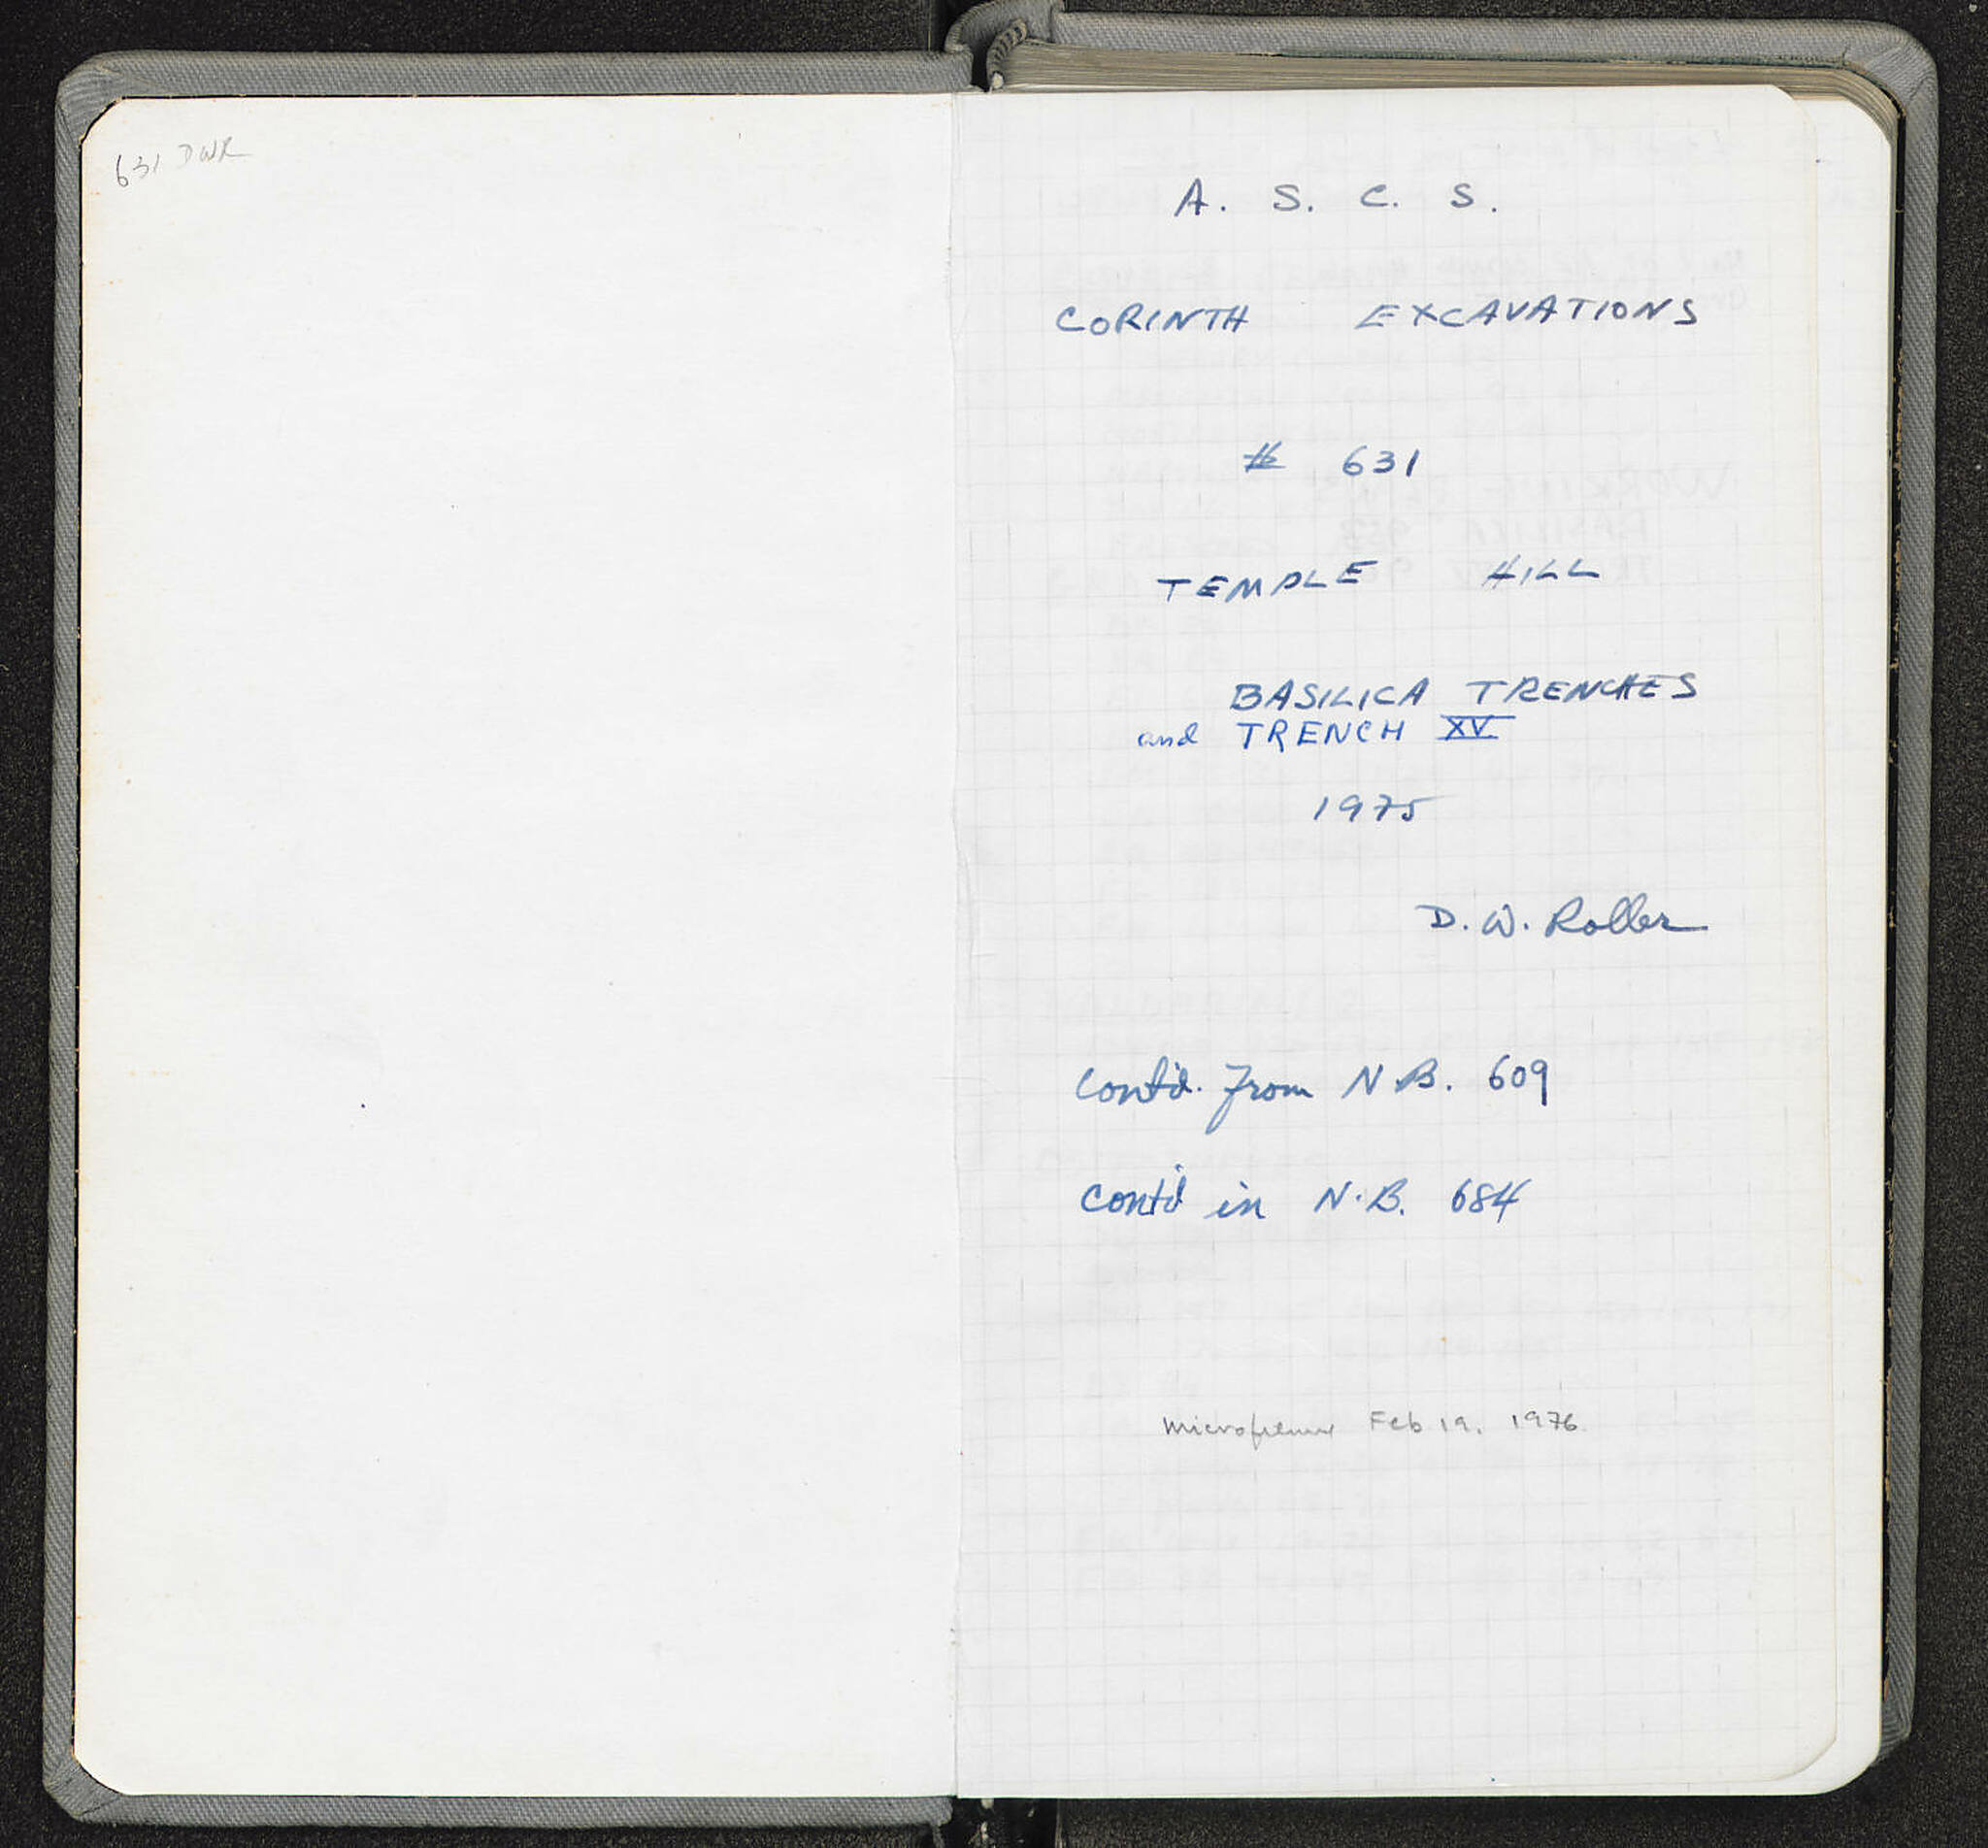 631 DWR
A. S. C. S.
CORINTH EXCAVATIONS
# 631
TEMPLE HILL
BASILICA TRENCHES
and TRENCH XV
1975
D. W. Roller
Cont'd. from N.B. 609
Cont'd in N.B. 684
Feb 19, 1976